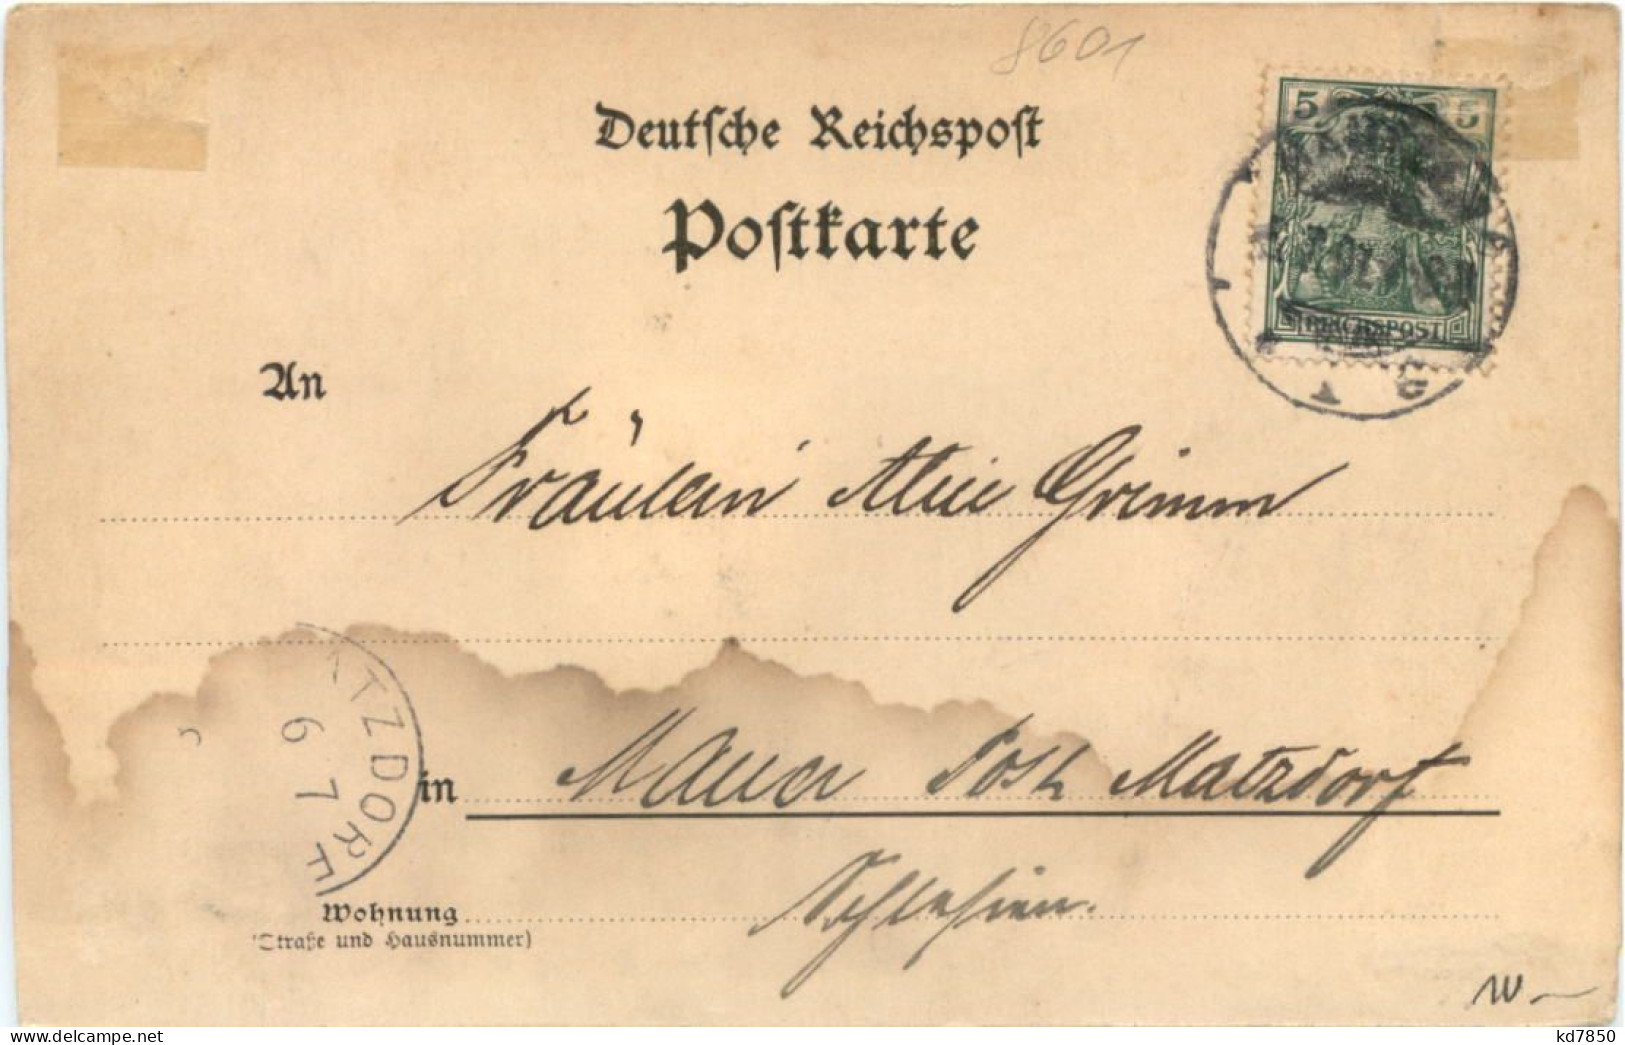 8601
Deutsche Reichspost
Postkarte
5 5
REICHSPOST
An
Fräulein Alice Grimm
in Mauer Post Matzdorf
ATZDORF
6 7
Schlesien.
Wohnung
(Straße und Hausnummer)
delcampe.net
kd7850